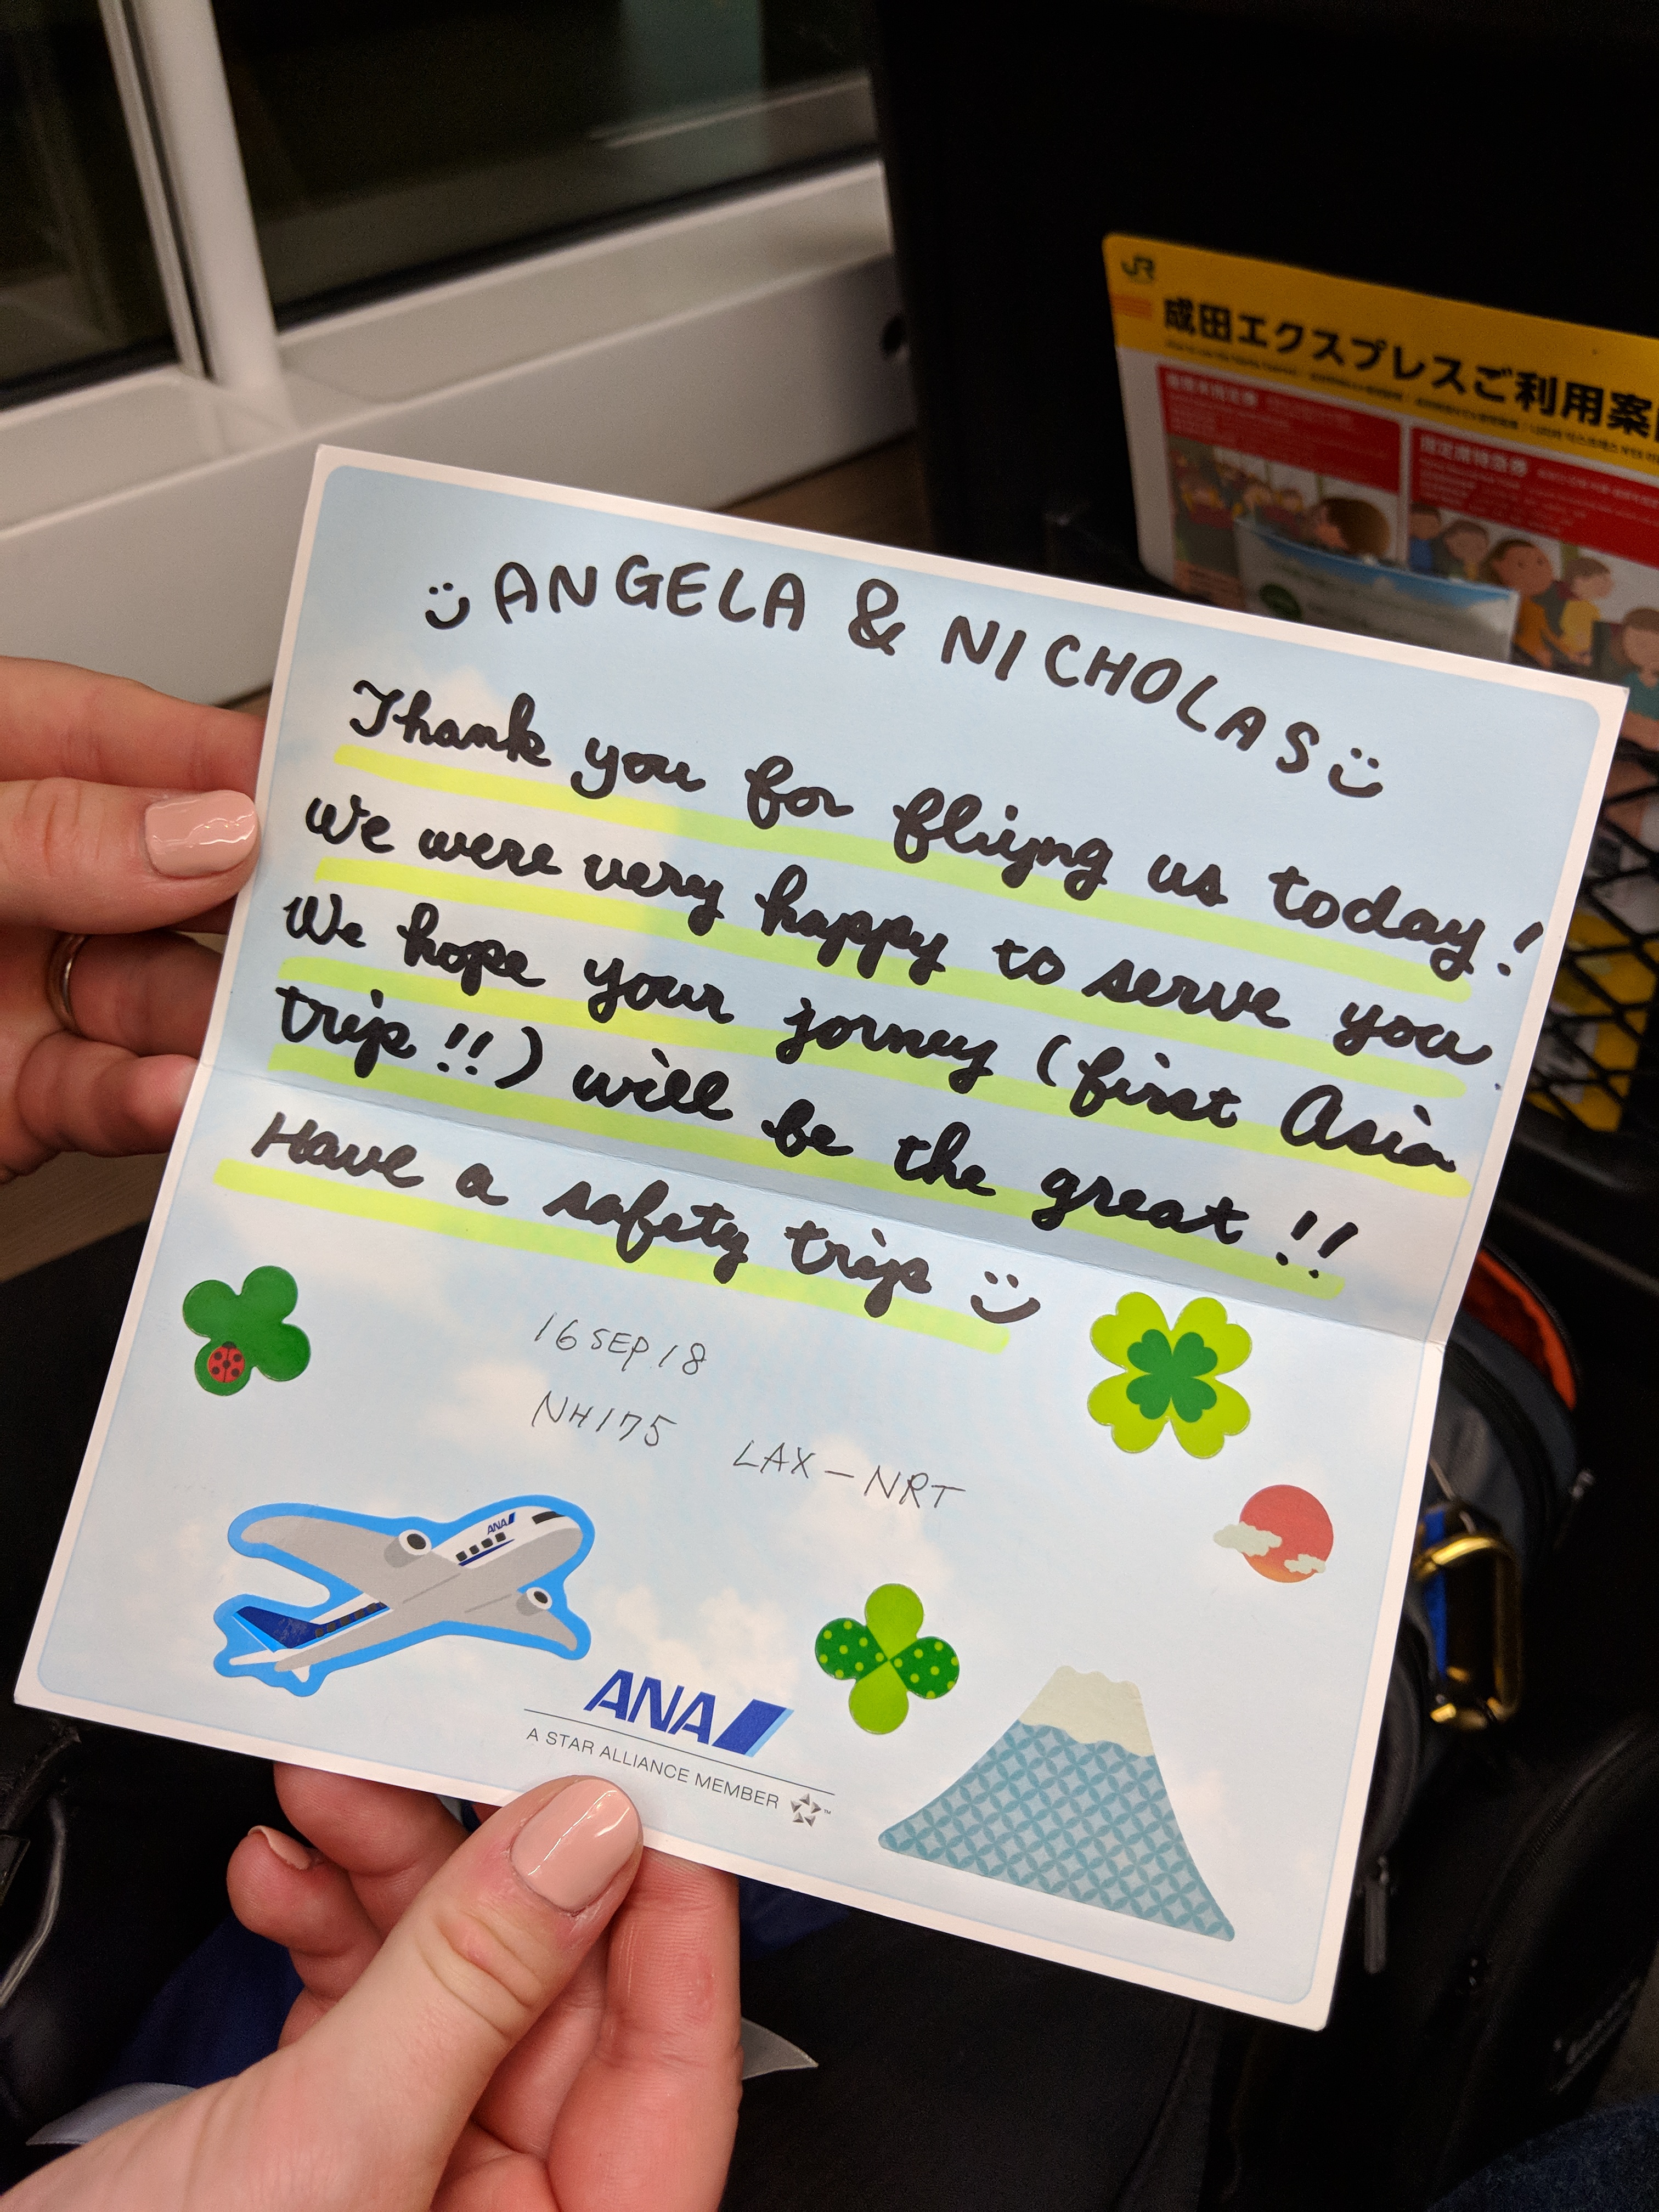 JR
成田エクスプレスご利用案
指定席特急券
ANGELA & NICHOLAS
Thank you for fliyng us today!
We were very happy to serve you.
We hope your jorney (first Asia
trip!!) will be the great!!
Have a safety trip
16 SEP. 18
NH175 LAX-NRT
ANA
ANA
A STAR ALLIANCE MEMBER
TM